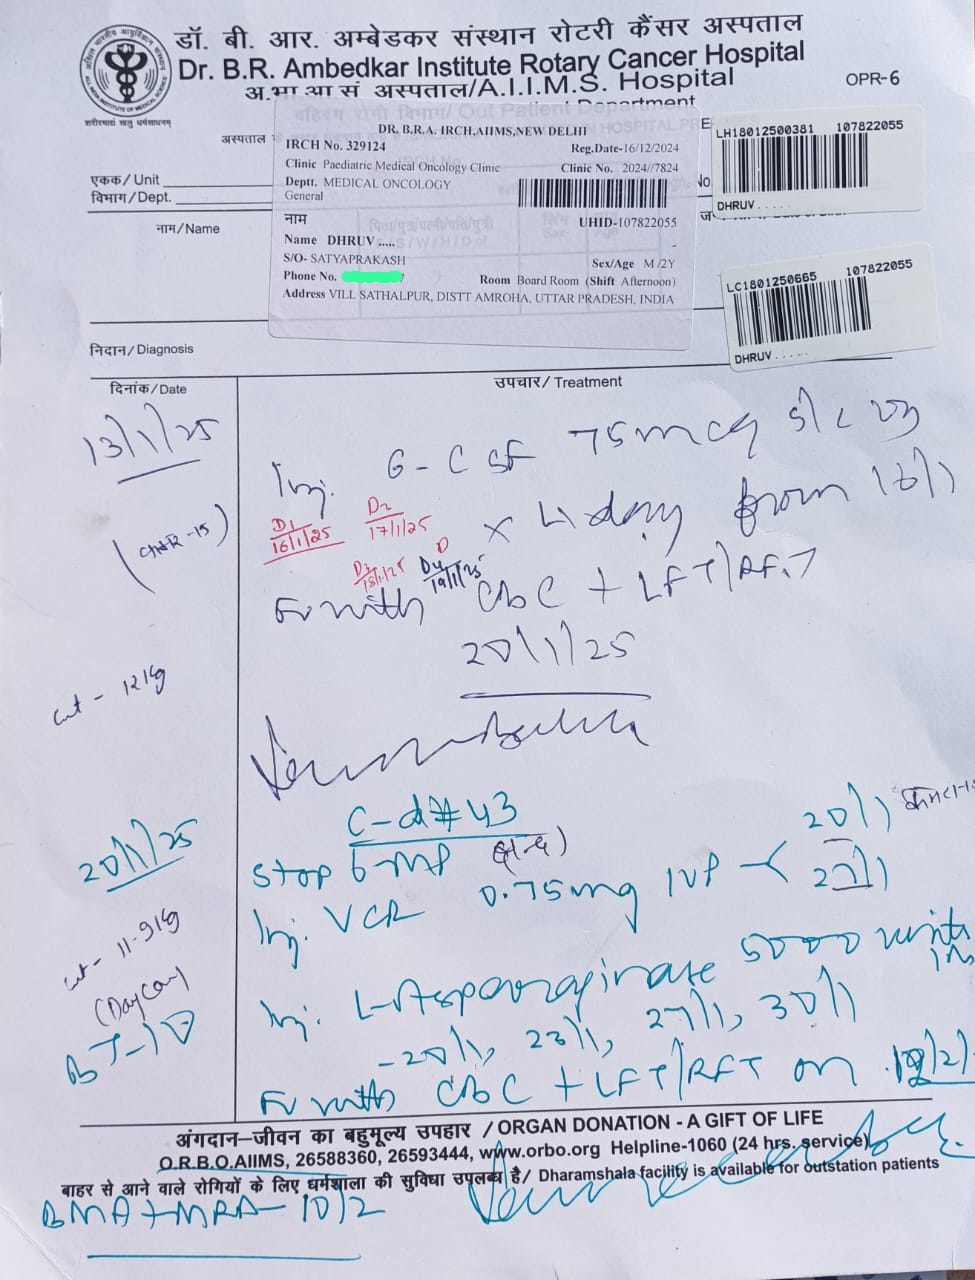 डॉ. बी. आर. अम्बेडकर संस्थान रोटरी कैंसर अस्पताल
Dr. B.R. Ambedkar Institute Rotary Cancer Hospital
अ.भा.आ.सं. अस्पताल/A.I.I.M.S. Hospital
OPR-6
बहिरंग रोगी विभाग/ Out Patient Department
शरीरमाद्यं खलु धर्मसाधनम्
अस्पताल
DR. B.R.A. IRCH,AIIMS,NEW DELHI
IRCH No. 329124
Reg.Date-16/12/2024
Clinic Paediatric Medical Oncology Clinic
Clinic No. 2024//7824
Deptt. MEDICAL ONCOLOGY
General
नाम
UHID-107822055
Name DHRUV .....
S/O- SATYAPRAKASH
Sex/Age M /2Y
Phone No.
Room Board Room (Shift Afternoon)
Address VILL SATHALPUR, DISTT AMROHA, UTTAR PRADESH, INDIA
LH18012500381 107822055
DHRUV . . . . .
LC1801250665 107822055
DHRUV . . . . .
एकक/ Unit
विभाग/Dept.
No.
नाम/Name
निदान/Diagnosis
दिनांक/Date
उपचार/ Treatment
13/1/25
Inj. G-CSF 75mcg S/C OD
x 4 day from 16/1
D1 16/1/25
D2 17/1/25
D3 18/1/25
D4 19/1/25
F/U with CBC + LFT/RFT
20/1/25
wt - 12kg
20/1/25
C-d#43
Stop 6-MP
Inj. VCR 0.75mg IVP
20/1
27/1
wt - 11.9kg
(Daycare)
Inj. L-Asparaginase 5000 units IM
- 20/1, 23/1, 27/1, 30/1
F/U with CBC + LFT/RFT on
अंगदान–जीवन का बहुमूल्य उपहार / ORGAN DONATION - A GIFT OF LIFE
O.R.B.O.AIIMS, 26588360, 26593444, www.orbo.org Helpline-1060 (24 hrs. service)
बाहर से आने वाले रोगियों के लिए धर्मशाला की सुविधा उपलब्ध है/ Dharamshala facility is available for outstation patients
BMA + MRD - 10/2